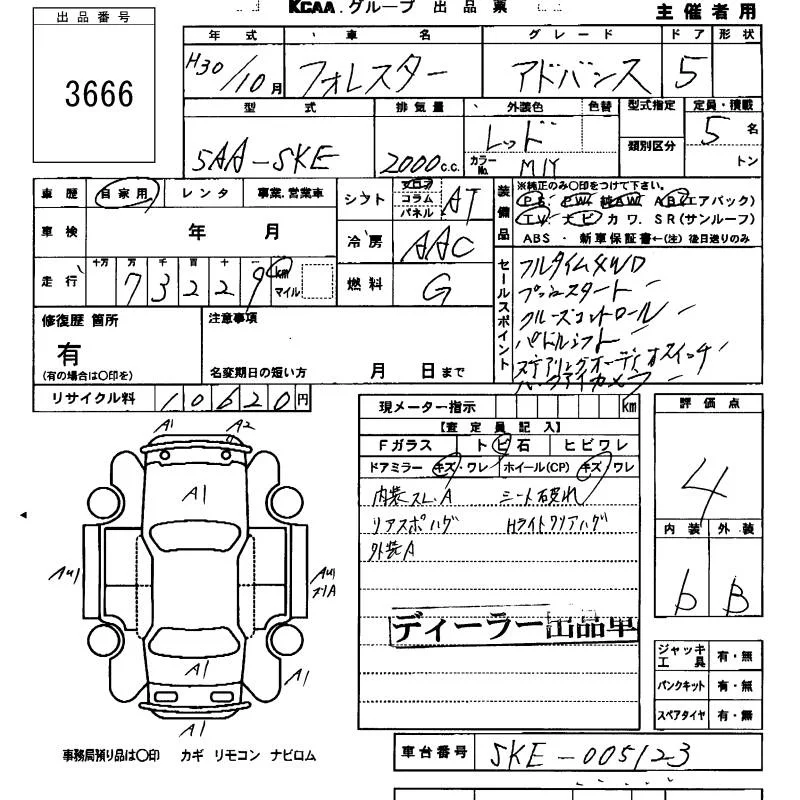 KCAA グループ 出品票
主催者用
出品番号
3666
年式 車名 グレード ドア 形状
H30/10月 フォレスター アドバンス 5
型式 排気量 外装色 色替 型式指定 定員・積載
5AA-SKE 2000c.c. レッド 5名
カラーNo. M1Y 類別区分 トン
車歴 自家用 レンタ 事業.営業車
車検 年 月
走行 十万 万 千 百 十 一 km マイル
7 3 2 2 9
シフト フロア コラム パネル AT
冷房 AAC
燃料 G
装備品
※純正のみ〇印をつけて下さい。
PS・PW・純AW・AB(エアバック)
TV・ナビ カワ. SR(サンルーフ)
ABS・新車保証書←(注)後日送りのみ
セールスポイント
フルタイム4WD
プッシュスタート
クルーズコントロール
パドルシフト
ステアリングオーディオスイッチ
バックアイカメラ
修復歴 箇所
有
(有の場合は〇印を)
注意事項
名変期日の短い方 月 日 まで
リサイクル料 10620円
現メーター指示 km
【査定員記入】
Fガラス トビ石 ヒビワレ
ドアミラー キズ・ワレ ホイール(CP) キズ・ワレ
内装スレ.A シート破れ
リアスポハゲ Hライトクリアハゲ
外装A
ディーラー出品車
評価点
4
内装 外装
b B
A1 A2
A1
AU1 AU1
A1
A1
A1
ジャッキ工具 有・無
パンクキット 有・無
スペアタイヤ 有・無
事務局預り品は〇印 カギ リモコン ナビロム
車台番号 SKE-005123